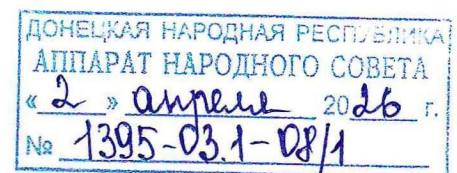 ДОНЕЦКАЯ НАРОДНАЯ РЕСПУБЛИКА
АППАРАТ НАРОДНОГО СОВЕТА
« 2 » апреля 2026 г.
№ 1395-03.1-08/1